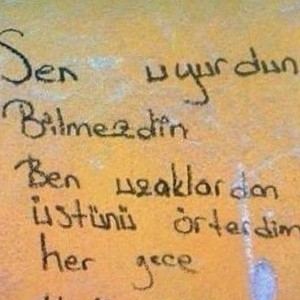 Sen uyurdun
Bilmezdin
Ben uzaklardan
üstünü örterdim
her gece